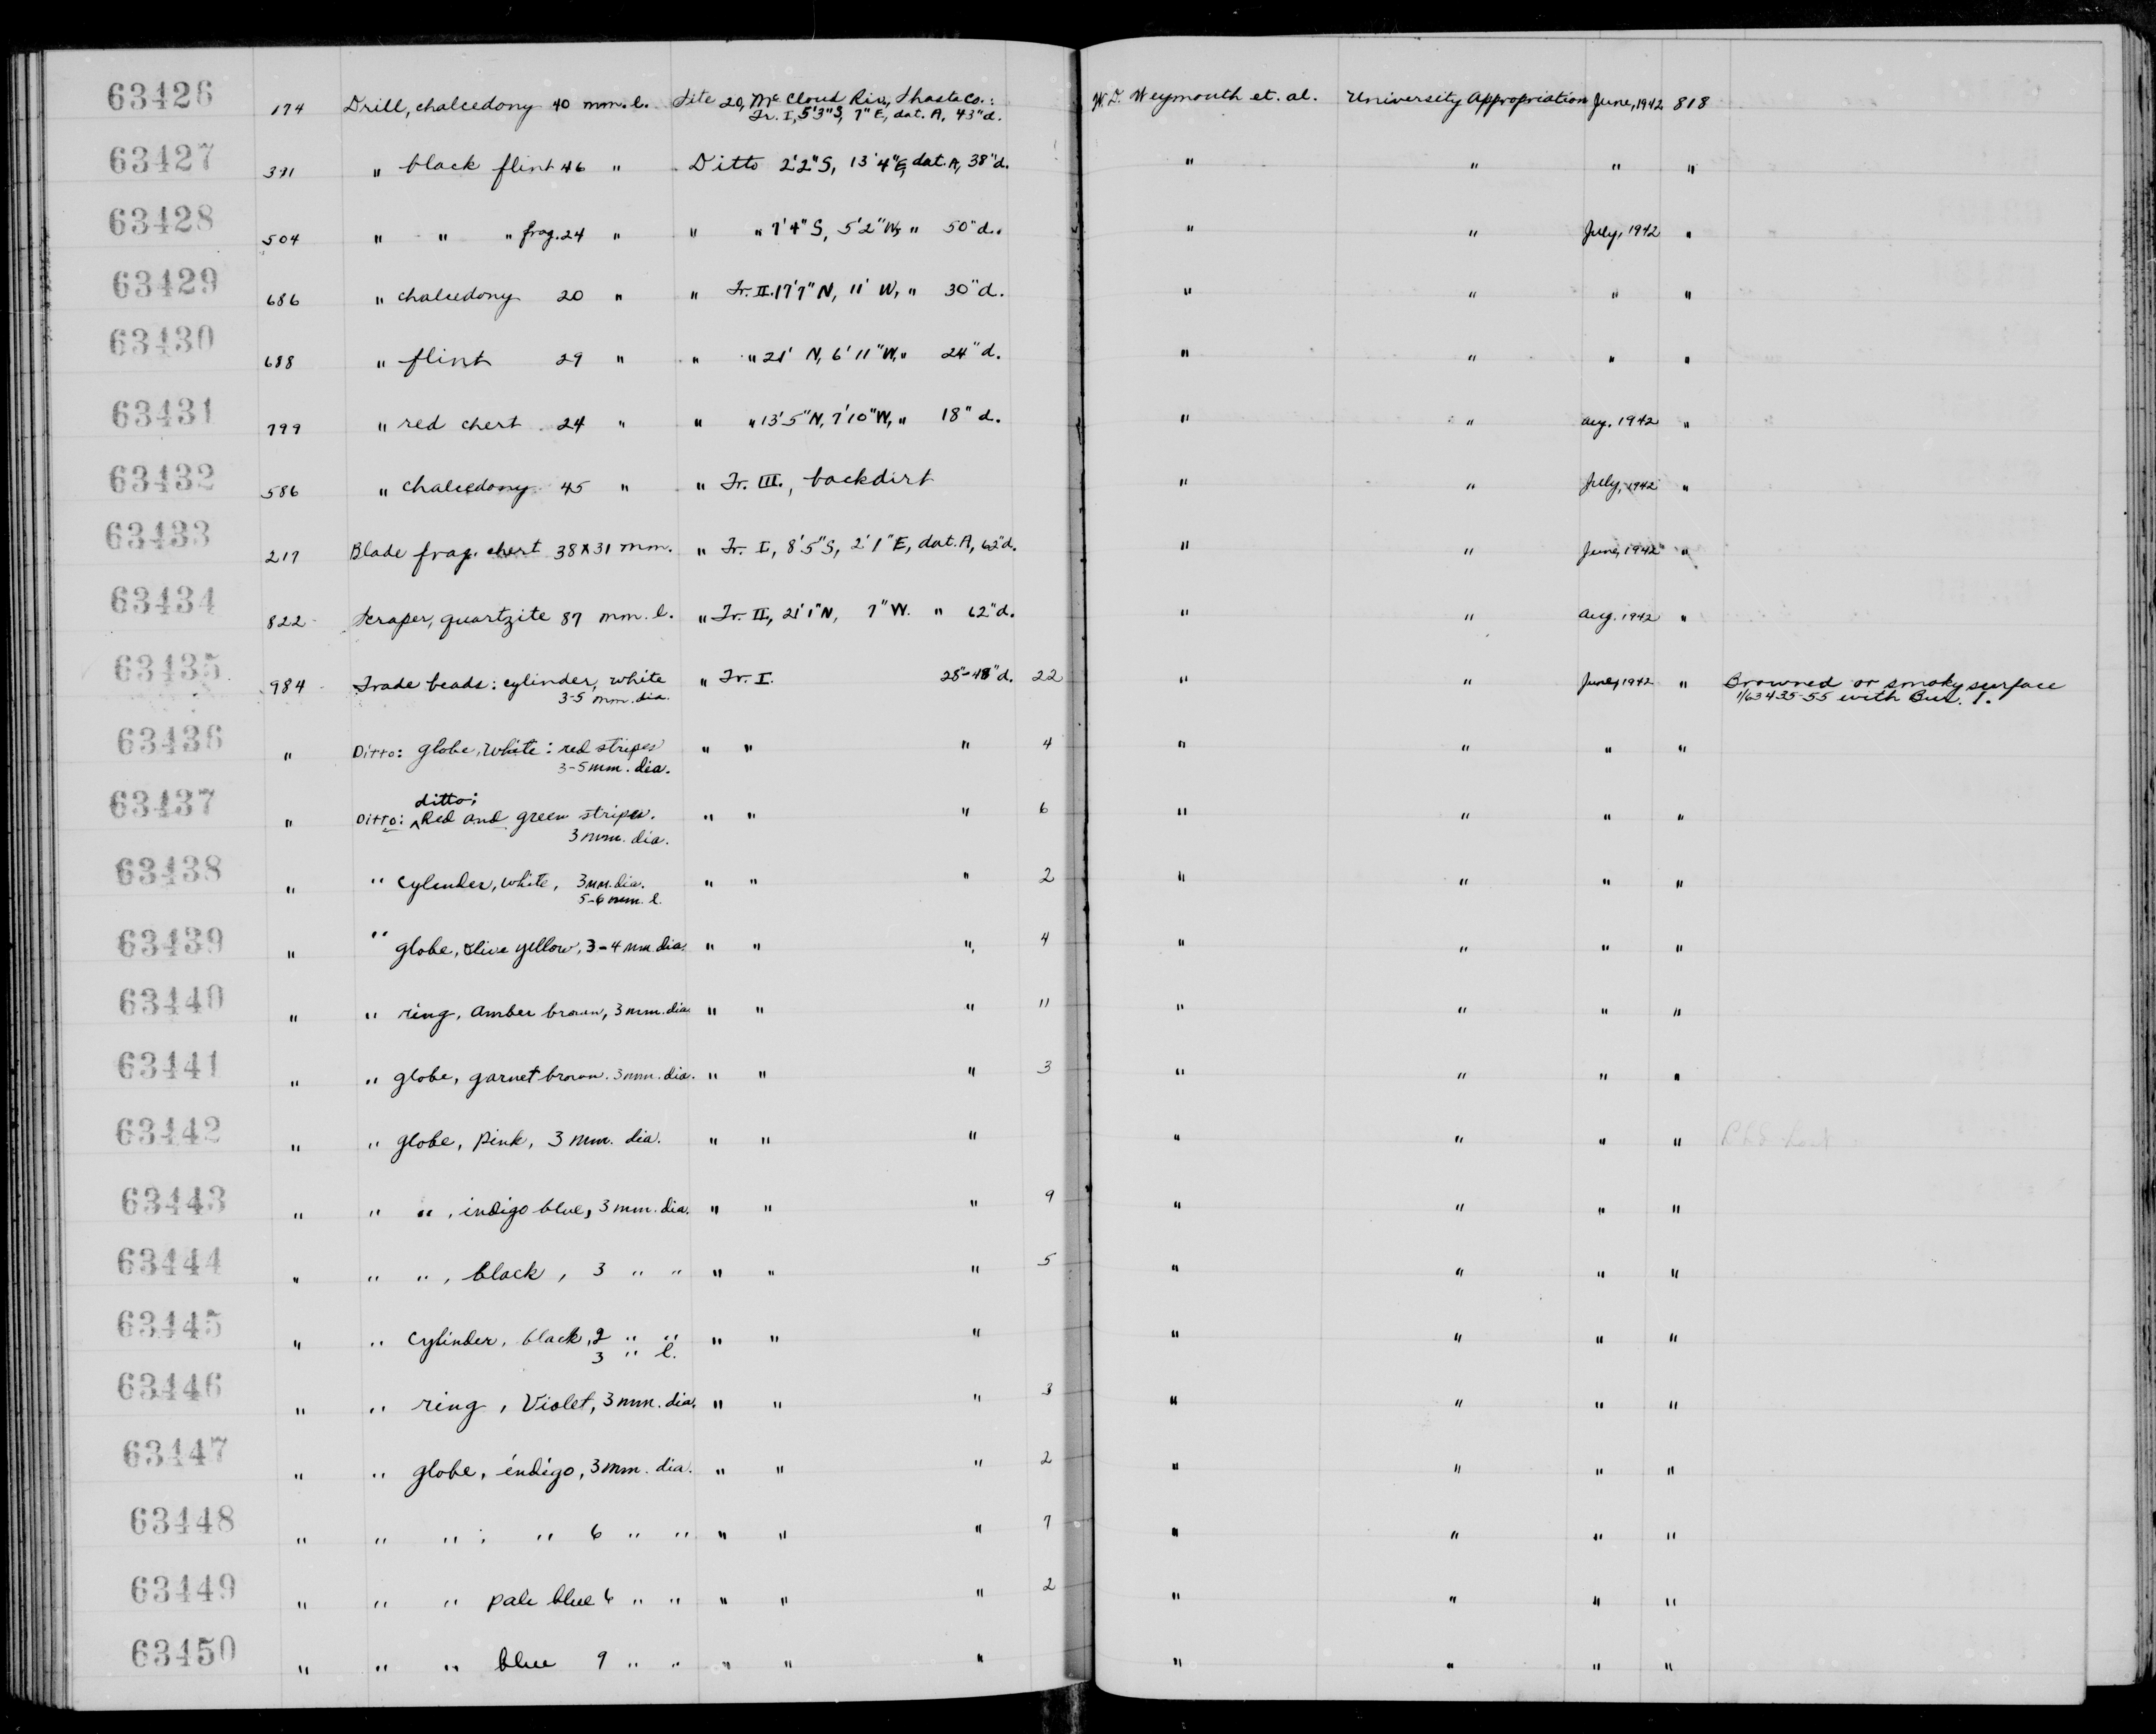 63426 174 Drill, chalcedony 40 mm. l. Site 20, Mc Cloud Riv., Shasta Co.: W. D. Weymouth et. al. University Appropriation June, 1942 818
Tr. I, 5'3"S, 7"E, dat. A, 43"d.
63427 391 " black flint 46 " Ditto 2'2"S, 13'4"E, dat. A, 38"d. " " " "
63428 504 " " " frag. 24 " " " 7'4"S, 5'2"W, " 50"d. " " July, 1942 "
63429 686 " chalcedony 20 " " Tr. II. 17'7"N, 11' W, " 30"d. " " " "
63430 688 " flint 29 " " " 21' N, 6'11"W, " 24"d. " " " "
63431 799 " red chert 24 " " " 13'5"N, 7'10"W, " 18"d. " " Aug. 1942 "
63432 586 " chalcedony 45 " " Tr. III., backdirt " " July, 1942 "
63433 217 Blade frag. chert 38x31 mm. " Tr. I, 8'5"S, 2'1"E, dat. A, 62"d. " " June, 1942 "
63434 822 Scraper, quartzite 87 mm. l. " Tr. II, 21'1"N, 7"W. " 62"d. " " Aug. 1942 "
63435 984 Trade beads: cylinder, white " Tr. I. 28"-48"d. 22 " " June, 1942 " Browned or smoky surface
3-5 mm. dia. 1/63435-55 with Bur. 1.
63436 " Ditto: globe, white: red stripes " " " 4 " " " "
3-5 mm. dia.
ditto:
63437 " Ditto: ^ Red and green stripes. " " " 6 " " " "
3 mm. dia.
63438 " " cylinder, white, 3 mm. dia. " " " 2 " " " "
5-6 mm. l.
63439 " " globe, olive yellow, 3-4 mm. dia. " " " 4 " " " "
63440 " " ring, amber brown, 3 mm. dia. " " " 11 " " " "
63441 " " globe, garnet brown. 3 mm. dia. " " " 3 " " " "
63442 " " globe, pink, 3 mm. dia. " " " " " " "
63443 " " " , indigo blue, 3 mm. dia. " " " 9 " " " "
63444 " " " , black, 3 " " " " " 5 " " " "
63445 " " cylinder, black, 2 " " " " " " " " "
3 " l.
63446 " " ring, Violet, 3 mm. dia. " " " 3 " " " "
63447 " " globe, indigo, 3 mm. dia. " " " 2 " " " "
63448 " " " ; " 6 " " " " " 7 " " " "
63449 " " " pale blue 6 " " " " " 2 " " " "
63450 " " " blue 9 " " " " " " " " "